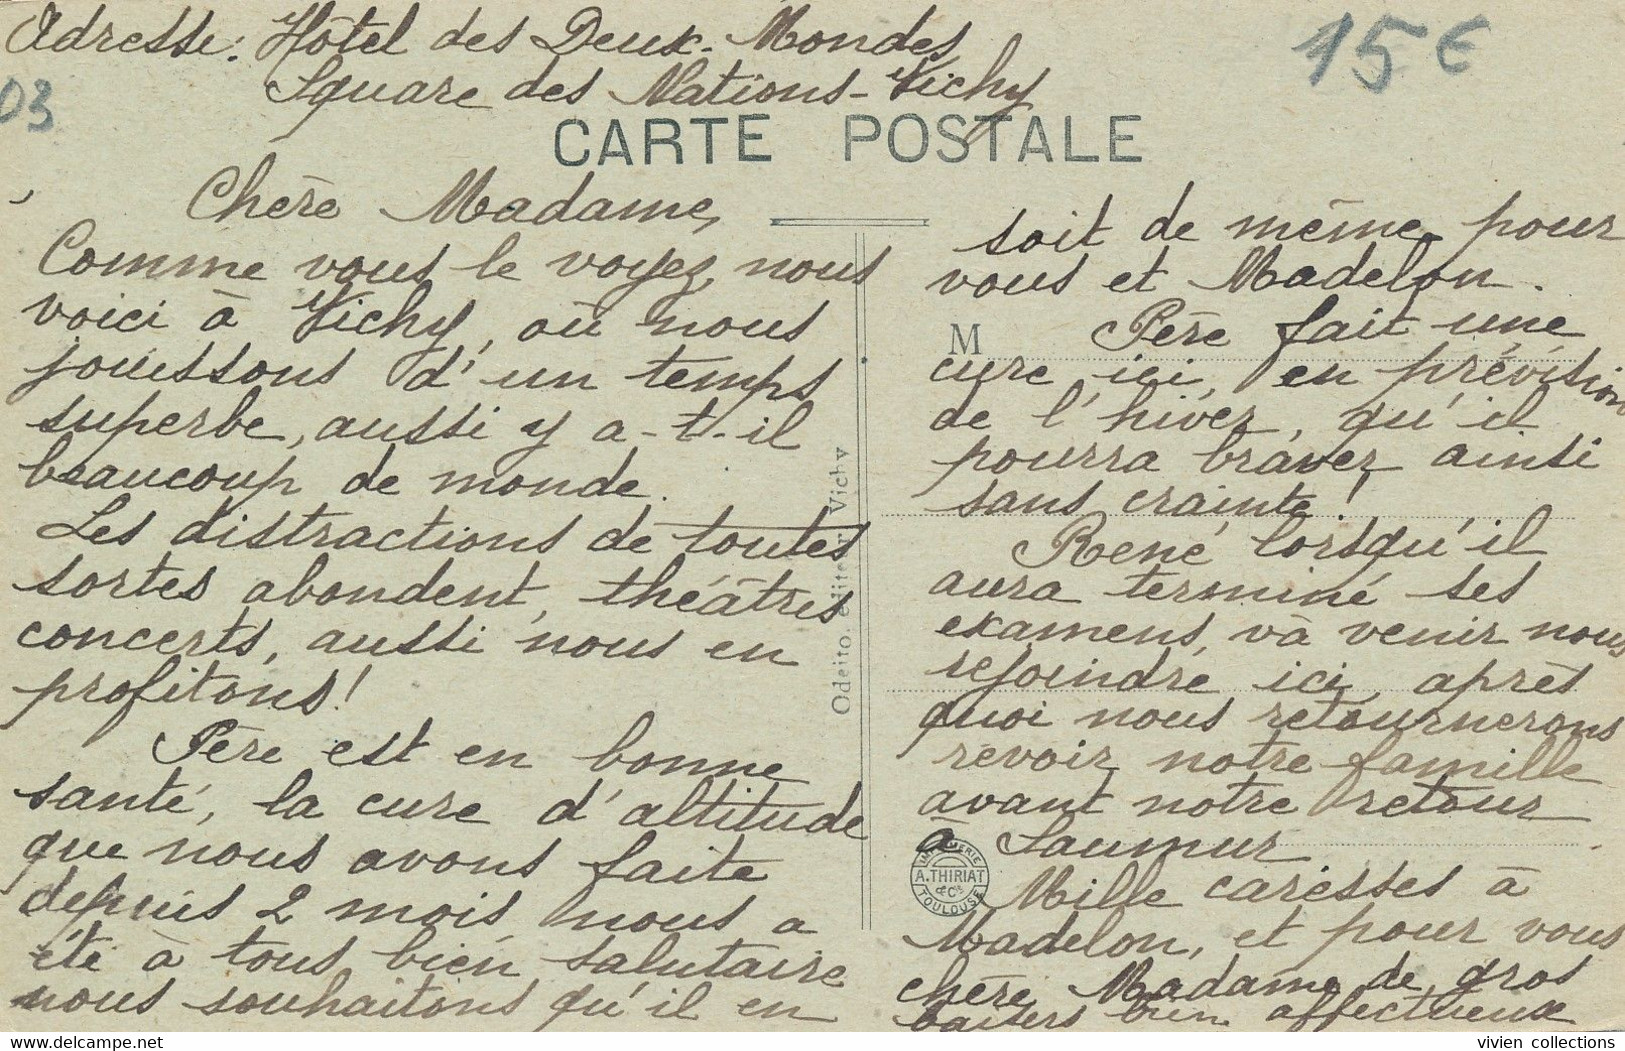 Adresse: Hôtel des Deux-Mondes
Square des Nations-Vichy
15 €
03
CARTE POSTALE
Chère Madame,
Comme vous le voyez, nous
voici à Vichy, où nous
jouissons d'un temps
superbe, aussi y a-t-il
beaucoup de monde.
Les distractions de toutes
sortes abondent, théâtres
concerts, aussi nous en
profitons!
Père est en bonne
santé, la cure d'altitude
que nous avons faite
depuis 2 mois, nous a
été à tous bien salutaire
nous souhaitons qu'il en
soit de même pour
vous et Madelon.
M
Père fait une
cure ici, en prévision
de l'hiver, qu'il
pourra braver ainsi
sans crainte!
René lorsqu'il
aura terminé ses
examens, và venir nous
rejoindre ici, après
quoi nous retournerons
revoir notre famille
avant notre retour
à Saumur.
Mille caresses à
Madelon, et pour vous
chère Madame de gros
baisers bien affectueux
Odeito, éditeur Vichy
IMPRIMERIE
A. THIRIAT
& Cie
TOULOUSE
vivien collections